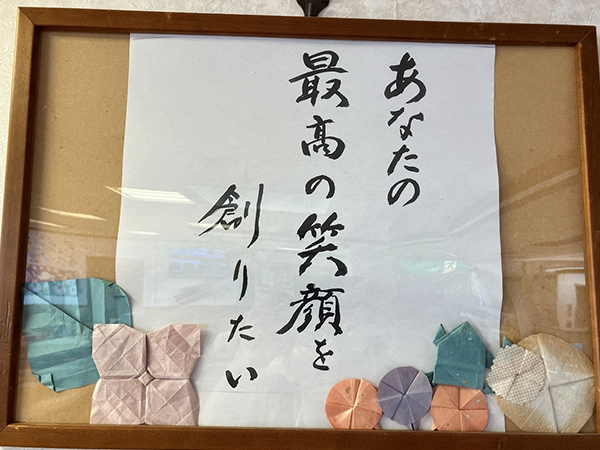 あなたの
最高の笑顔を
創りたい